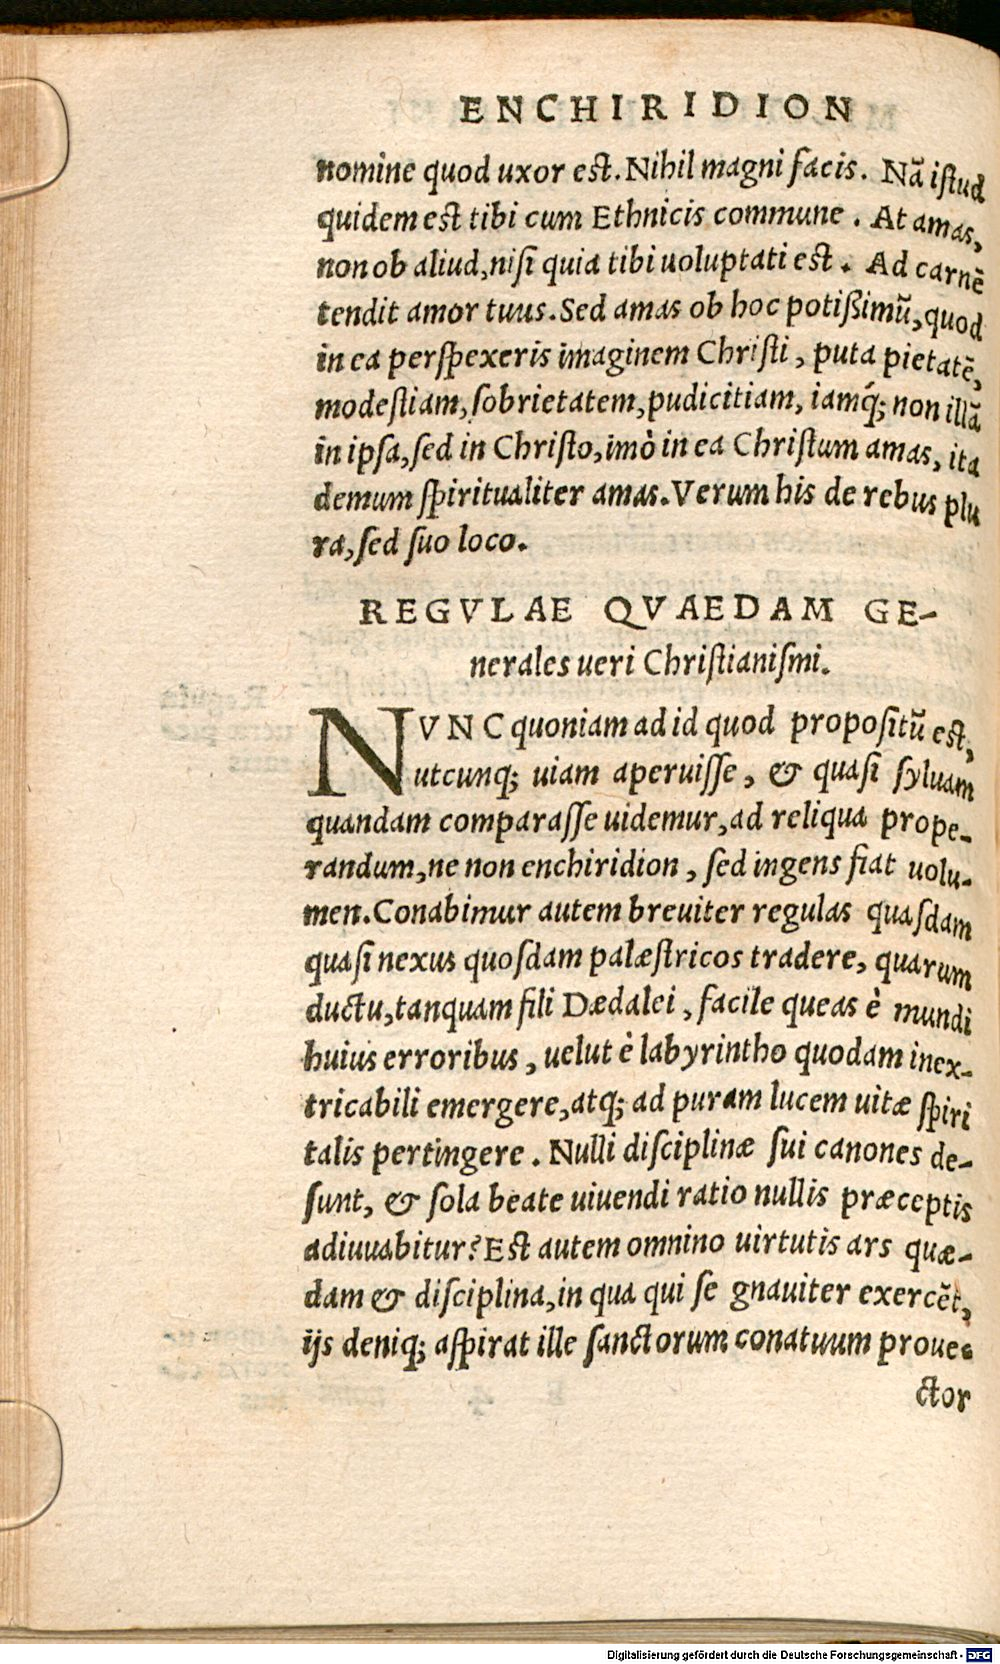 ENCHIRIDION
nomine quod uxor est. Nihil magni facis. Nã istud
quidem est tibi cum Ethnicis commune. At amas,
non ob aliud, nisi quia tibi uoluptati est. Ad carnẽ
tendit amor tuus. Sed amas ob hoc potißimũ, quod
in ea perspexeris imaginem Christi, puta pietatẽ,
modestiam, sobrietatem, pudicitiam, iamq́; non illã
in ipsa, sed in Christo, imò in ea Christum amas, ita
demum spiritualiter amas. Verum his de rebus plu
ra, sed suo loco.
REGVLAE QVAEDAM GE-
nerales ueri Christianismi.
NVNC quoniam ad id quod propositũ est,
utcunq; uiam aperuisse, & quasi syluam
quandam comparasse uidemur, ad reliqua prope-
randum, ne non enchiridion, sed ingens fiat uolu-
men. Conabimur autem breuiter regulas quasdam
quasi nexus quosdam palæstricos tradere, quarum
ductu, tanquam fili Dædalei, facile queas è mundi
huius erroribus, uelut è labyrintho quodam inex-
tricabili emergere, atq; ad puram lucem uitæ spiri
talis pertingere. Nulli disciplinæ sui canones de-
sunt, & sola beate uiuendi ratio nullis præceptis
adiuuabitur? Est autem omnino uirtutis ars quæ-
dam & disciplina, in qua qui se gnauiter exercẽt,
ijs deniq; aspirat ille sanctorum conatuum proue-
ctor
Digitalisierung gefördert durch die Deutsche Forschungsgemeinschaft - DFG